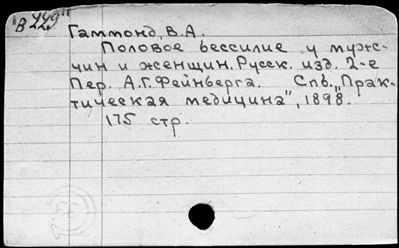 "В 229"
Гаммонд, В.А.
Половое бессилие у муж-
чин и женщин. Русск. изд. 2-е
Пер. А.Г. Фейнберга. Спб. "Прак-
тическая медицина", 1898.
175 стр.